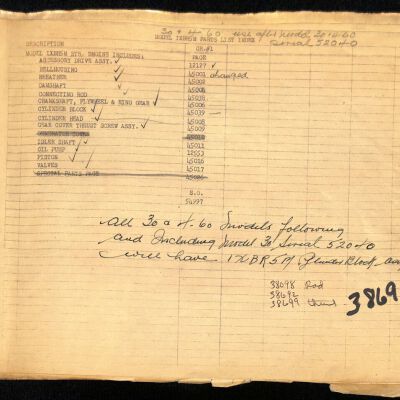 30 & 4-60 use after
serial 52040
MODEL 1XBR5M PARTS LIST INDEX
DESCRIPTION GR.#1
MODEL 1XBR5M STD. ENGINE INCLUDES: PAGE
ACCESSORY DRIVE ASSY. ✓ 12127 ✓
BELLHOUSING ✓ 45001 changed
BREATHER
CAMSHAFT 45008
CONNECTING ROD
CRANKSHAFT, FLYWHEEL & RING GEAR ✓
CYLINDER BLOCK ✓ 45006
CYLINDER HEAD ✓ 45039 —
GEAR COVER THRUST SCREW ASSY. ✓ 45008
45009
IDLER SHAFT ✓
OIL PUMP ✓ 45011
PISTON ✓ 12553
VALVES 45016
SPECIAL PARTS PAGE 45017
S.O.
54997
All 30 & 4-60 models following
and Including Model 30 Serial 52040
will have 1XBR5M Cylinder Block
38098 Rod
38699
3869